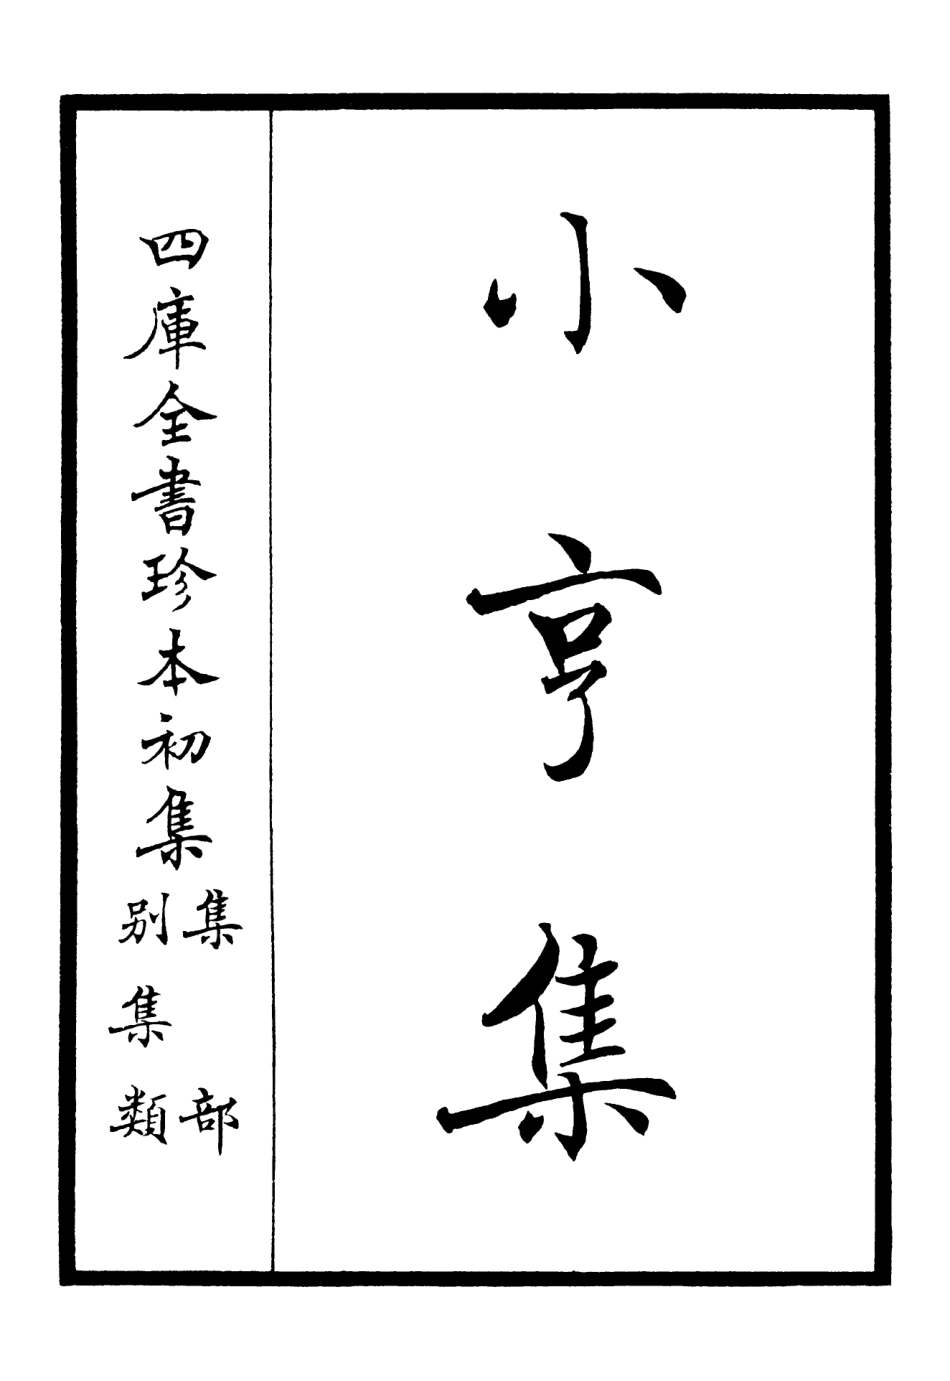 小亨集
四庫全書珍本初集
集部
别集類